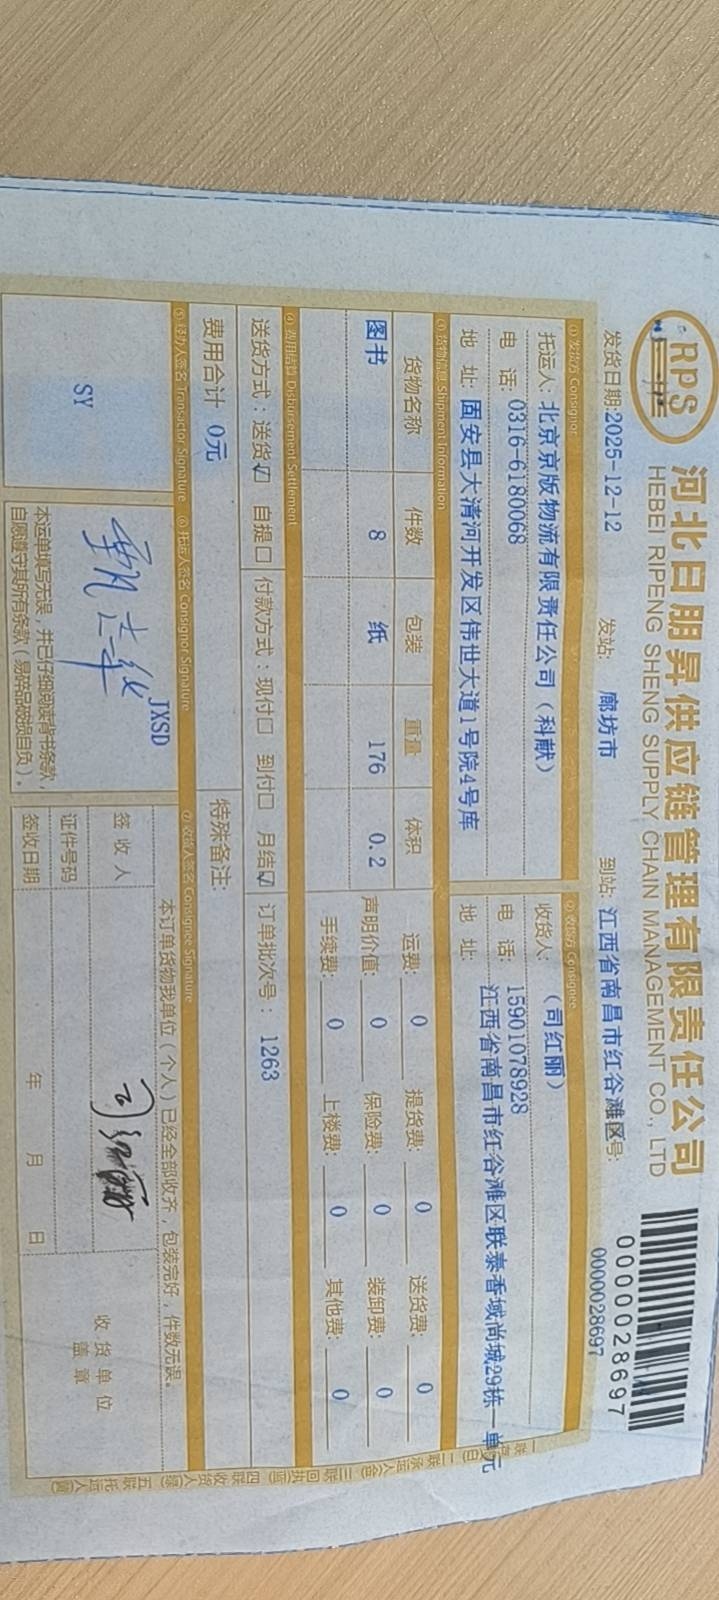 RPS
河北日朋昇供应链管理有限责任公司
HEBEI RIPENG SHENG SUPPLY CHAIN MANAGEMENT CO., LTD
0000028697
发货日期:2025-12-12 发站: 廊坊市 到站: 江西省南昌市红谷滩区号: 0000028697
① 发货方 Consignor
托运人: 北京京版物流有限责任公司 (科献)
电 话: 0316-6180068
地 址: 固安县大清河开发区伟世大道1号院4号库
② 收货方 Consignee
收货人: (司红丽)
电 话: 15901078928
地 址: 江西省南昌市红谷滩区联泰香域尚城29栋一单元
③ 货物信息 Shipment Information
货物名称 件数 包装 重量 体积
图书 8 纸 176 0.2
运费: 0 提货费: 0 送货费: 0
声明价值: 0 保险费: 0 装卸费: 0
手续费: 0 上楼费: 0 其他费: 0
④ 费用结算 Disbursement Settlement
送货方式: 送货☑ 自提□ 付款方式: 现付□ 到付□ 月结☑ 订单批次号: 1263
费用合计 0元 特殊备注:
⑤ 经办人签名 Transactor Signature
SY
⑥ 托运人签名 Consignor Signature
JXSD
本运单填写无误，并已仔细阅读背书条款，
自愿遵守其所有条款(易碎品破损自负)。
⑦ 收货人签名 Consignee Signature
本订单货物我单位(个人)已经全部收齐，包装完好，件数无误。
签收人 司红丽
证件号码
签收日期 年 月 日
收货单位
盖章